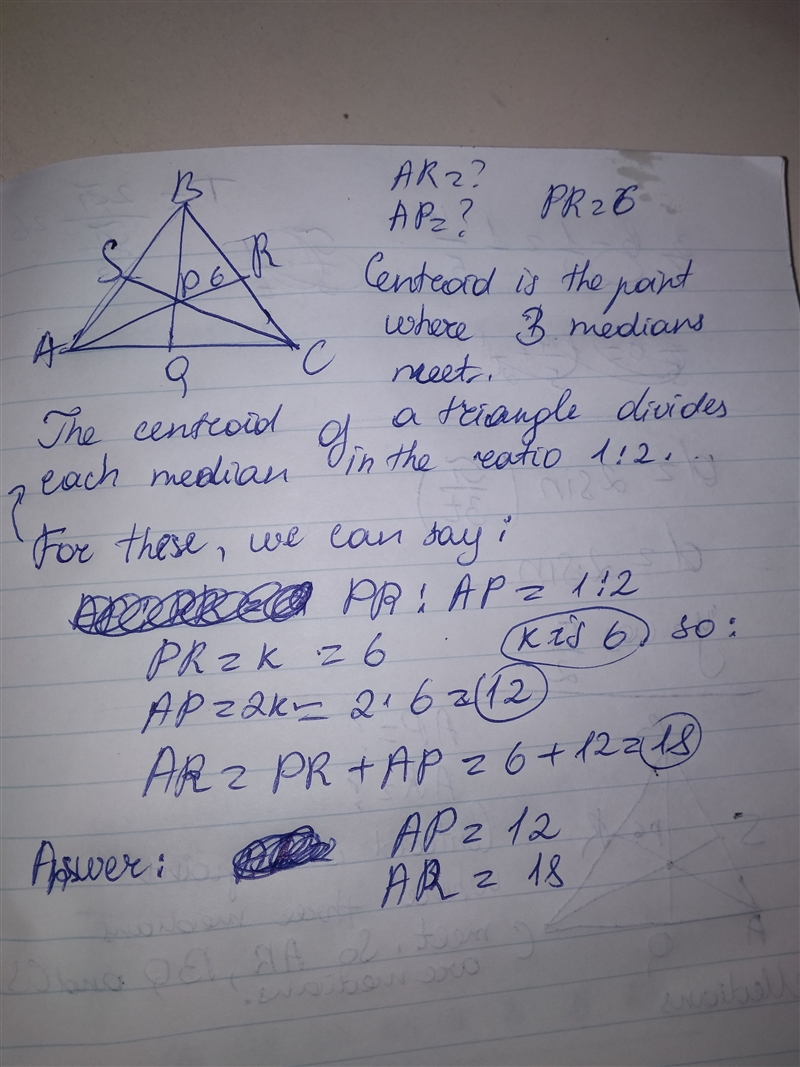 B
AR=?
AP=?
PR=6
S
P 6
R
A
Q
C
Centroid is the point
where 3 medians
meet.
The centroid of a triangle divides
each median in the ratio 1:2...
For these, we can say:
PR : AP = 1:2
PR = k = 6
k is 6. so:
AP = 2k = 2 · 6 = 12
AR = PR + AP = 6 + 12 = 18
Answer:
AP = 12
AR = 18
C
Q
A
meet. So AR, BQ and CS
are medians.
Medians